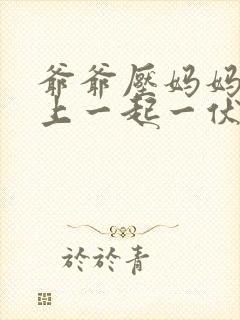 爺爺壓媽媽
上一起一伏
於於青